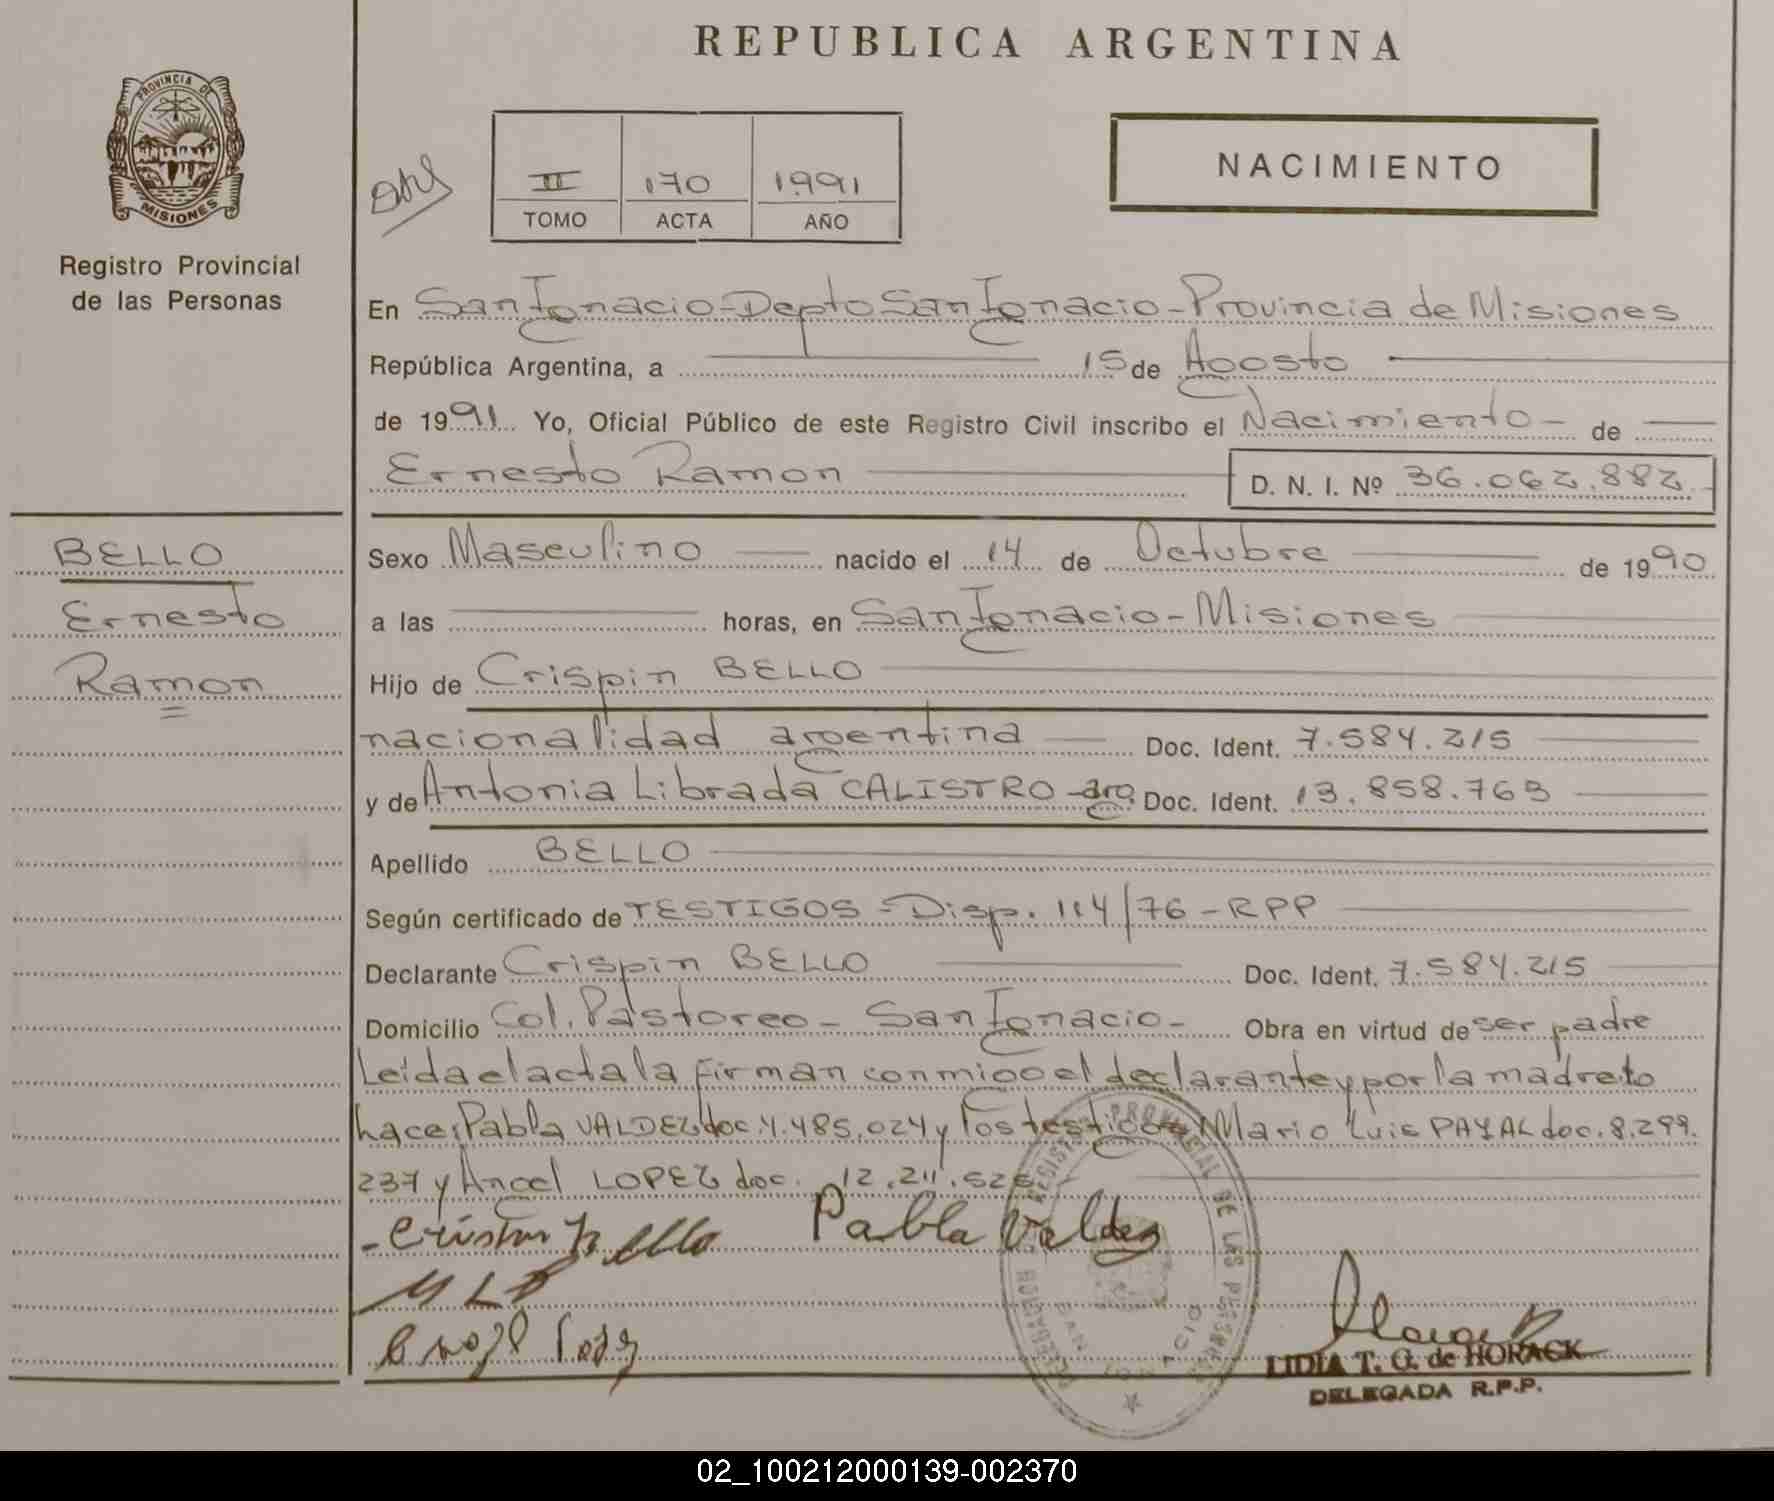 REPUBLICA ARGENTINA
PROVINCIA DE
MISIONES
Registro Provincial
de las Personas
II 170 1991
TOMO ACTA AÑO
NACIMIENTO
En San Ignacio - Depto San Ignacio - Provincia de Misiones
República Argentina, a 15 de Agosto
de 1991 Yo, Oficial Público de este Registro Civil inscribo el Nacimiento - de
Ernesto Ramon D. N. I. Nº 36.062.882
BELLO
Ernesto
Ramon
Sexo Masculino nacido el 14 de Octubre de 1990
a las horas, en San Ignacio - Misiones
Hijo de Crispin BELLO
nacionalidad argentina Doc. Ident. 7.584.215
y de Antonia Librada CALISTRO - arg. Doc. Ident. 13.858.763
Apellido BELLO
Según certificado de TESTIGOS - Disp. 114/76 - RPP
Declarante Crispin BELLO Doc. Ident. 7.584.215
Domicilio Col. Pastoreo - San Ignacio - Obra en virtud de ser padre
Leida el acta la firman conmigo el declarante y por la madre lo
hace: Pabla VALDEZ doc. 4.485.024 y los testigos Mario Luis PAYAL doc. 8.299.
237 y Angel LOPEZ doc. 12.211.526
Crispin Bello Pabla Valdez
MLP
Angel Lopez
REGISTRO PROVINCIAL DE LAS PERSONAS
DELEGACION
SAN IGNACIO
LIDIA T. G. de HORACK
DELEGADA R.P.P.
02_100212000139-002370